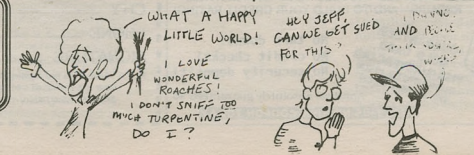 WHAT A HAPPY
LITTLE WORLD!
I LOVE
WONDERFUL
ROACHES!
I DON'T SNIFF TOO
MUCH TURPENTINE,
DO I?
HEY JEFF,
CAN WE GET SUED
FOR THIS?
AND